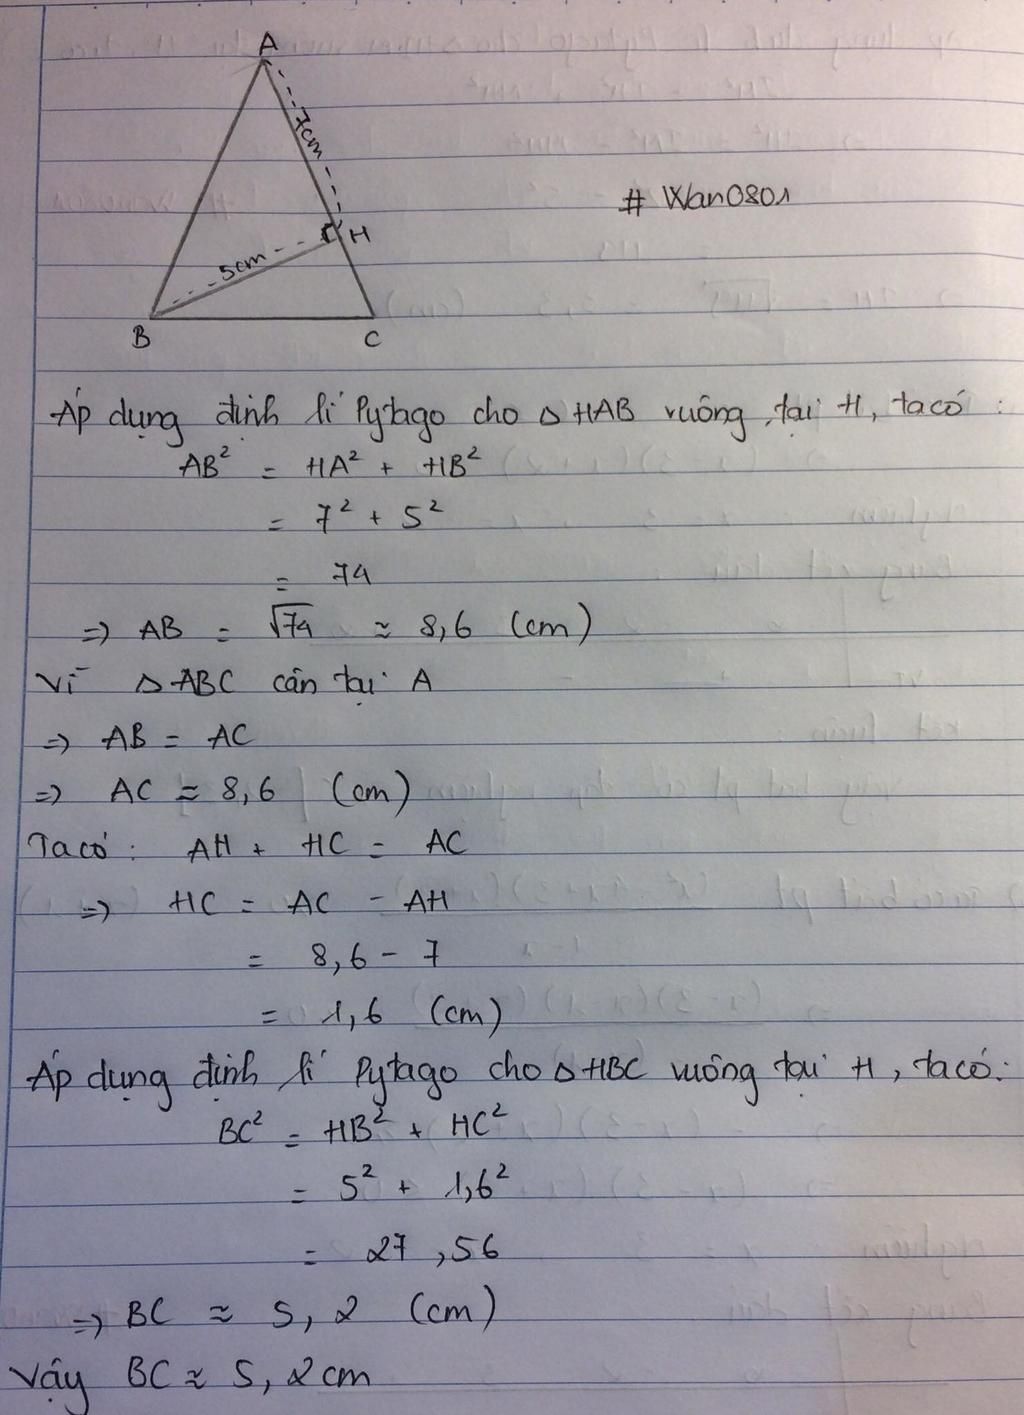 A
7cm
# Wan0801
H
5cm
B
C
Áp dụng định lí Pytago cho △HAB vuông tại H, ta có :
AB² = HA² + HB²
= 7² + 5²
= 74
=> AB = √74 ≈ 8,6 (cm)
Vì △ABC cân tại A
=> AB = AC
=> AC ≈ 8,6 (cm)
Ta có : AH + HC = AC
=> HC = AC - AH
= 8,6 - 7
= 1,6 (cm)
Áp dụng định lí Pytago cho △HBC vuông tại H, ta có:
BC² = HB² + HC²
= 5² + 1,6²
= 27,56
=> BC ≈ 5,2 (cm)
Vậy BC ≈ 5,2cm